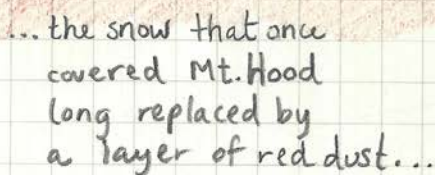 ...the snow that once
covered Mt. Hood
long replaced by
a layer of red dust...